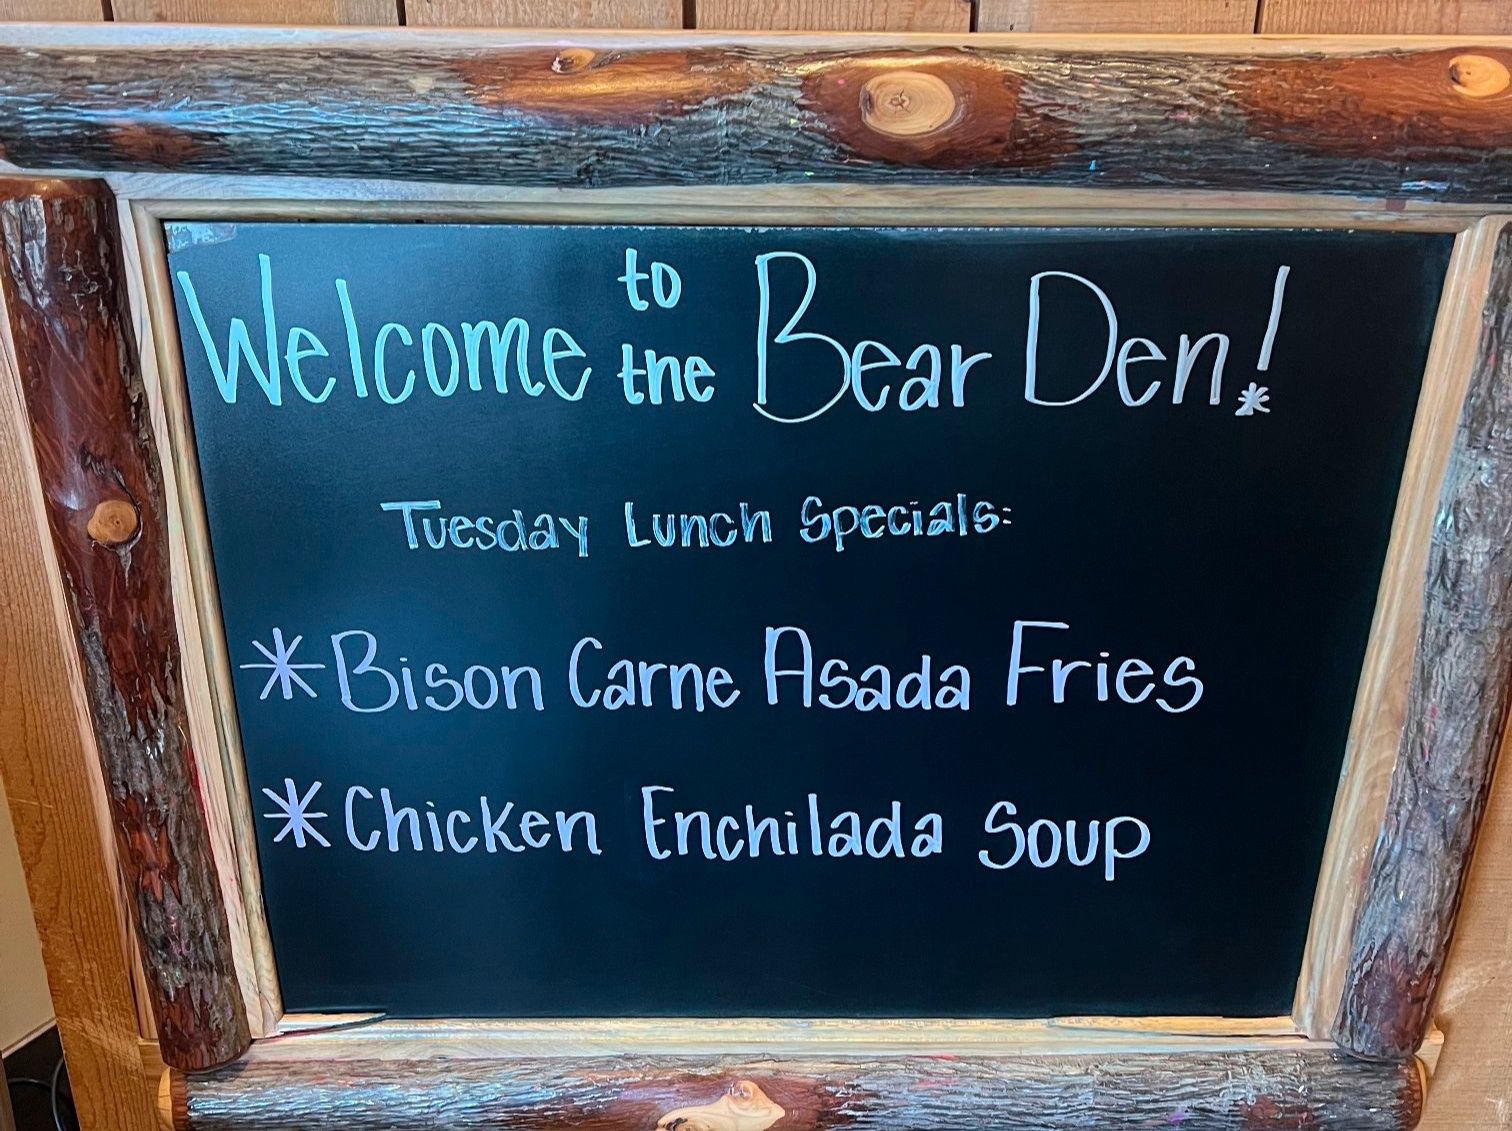 Welcome to the Bear Den!
Tuesday Lunch Specials:
*Bison Carne Asada Fries
*Chicken Enchilada Soup